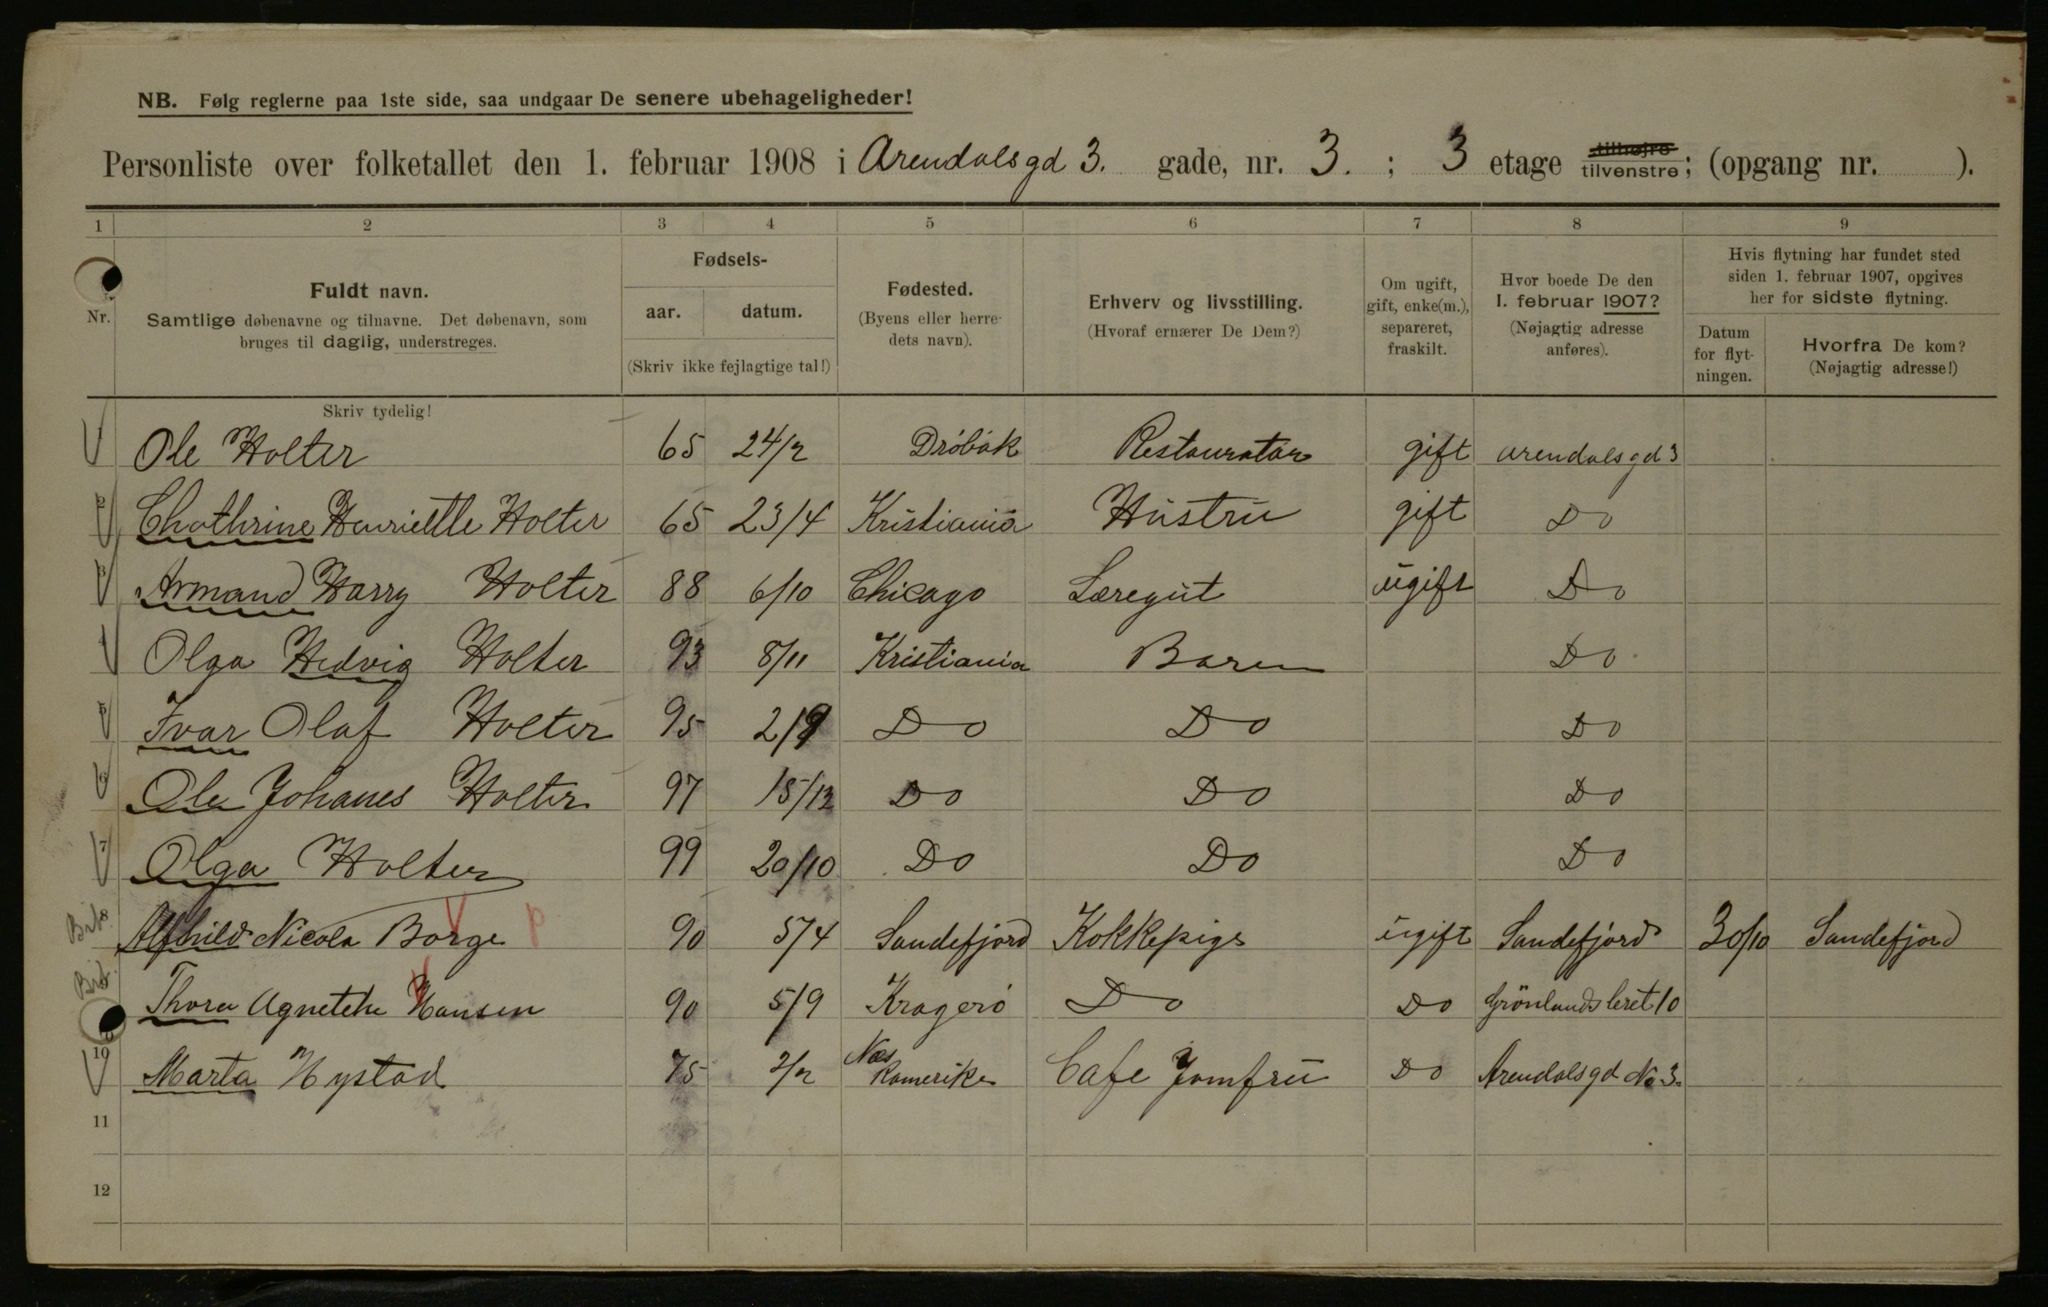 NB. Følg reglerne paa 1ste side, saa undgaar De senere ubehageligheder!
Personliste over folketallet den 1. februar 1908 i Arendalsgd 3. gade, nr. 3. ; 3 etage tilhøjre tilvenstre; (opgang nr. ).
1 2 3 4 5 6 7 8 9
Nr.
Fuldt navn.
Samtlige døbenavne og tilnavne. Det døbenavn, som
bruges til daglig, understreges.
Skriv tydelig!
Fødsels-
aar. datum.
(Skriv ikke fejlagtige tal!)
Fødested.
(Byens eller herre-
dets navn).
Erhverv og livsstilling.
(Hvoraf ernærer De Dem?)
Om ugift,
gift, enke(m.),
separeret,
fraskilt.
Hvor boede De den
1. februar 1907?
(Nøjagtig adresse
anføres).
Hvis flytning har fundet sted
siden 1. februar 1907, opgives
her for sidste flytning.
Datum
for flyt-
ningen.
Hvorfra De kom?
(Nøjagtig adresse!)
1 Ole Holter 65 24/2 Drøbak Restauratør gift Arendalsgd 3
2 Chathrine Henriette Holter 65 23/4 Kristiania Hustru gift Do
3 Armand Harry Holter 88 6/10 Chicago Læregut ugift Do
4 Olga Hedvig Holter 93 8/11 Kristiania Barn Do
5 Ivar Olaf Holter 95 2/9 Do Do Do
6 Ole Johanes Holter 97 15/12 Do Do Do
7 Olga Holter 99 20/10 Do Do Do
8 Alfhild Nicola Borge p 90 5/4 Sandefjord Kokkepige ugift Sandefjord 30/10 Sandefjord
Thora Agnethe Hansen 90 5/9 Kragerö Do Do Grönlandsleret 10
10 Marta Nystad 75 2/2 Næs Romerike Cafe Jomfru Do Arendalsgd No 3.
11
12